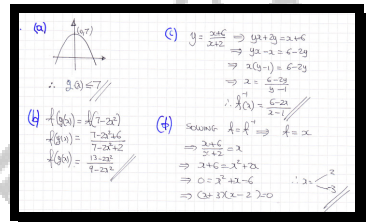 (a)
(0,7)
∴ g(x) ≤ 7
(b) f(g(x)) = f(7-2x²)
f(g(x)) = 7-2x²+6 / 7-2x²+2
f(g(x)) = 13-2x² / 9-2x²
(c) y = x+6 / x+2 ⇒ yx+2y = x+6
⇒ yx-x = 6-2y
⇒ x(y-1) = 6-2y
⇒ x = 6-2y / y-1
∴ f⁻¹(x) = 6-2x / x-1
(d) SOLVING f = f⁻¹ ⇒ f = x
⇒ x+6 / x+2 = x
⇒ x+6 = x²+2x
⇒ 0 = x²+x-6
⇒ (x+3)(x-2) = 0
∴ x = 2
-3